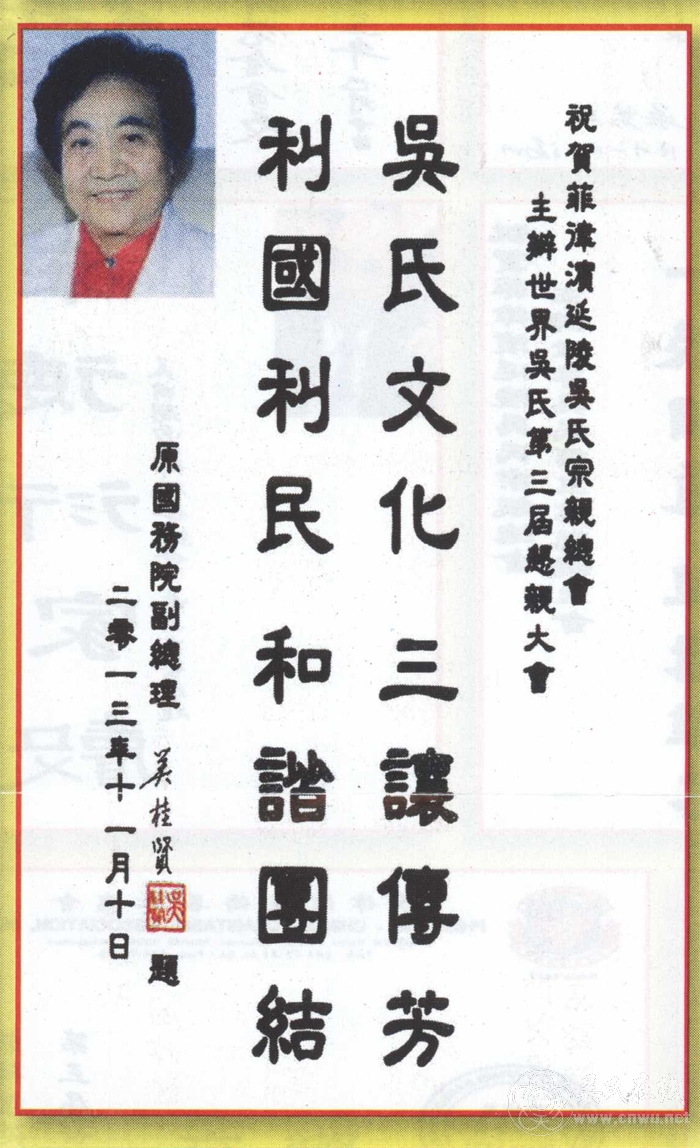 祝賀菲律濱延陵吳氏宗親總會
主辦世界吳氏第三屆懇親大會
吳氏文化三讓傳芳
利國利民和諧團結
原國務院副總理 吳桂賢 題
二零一三年十一月十日
www.cnwu.net